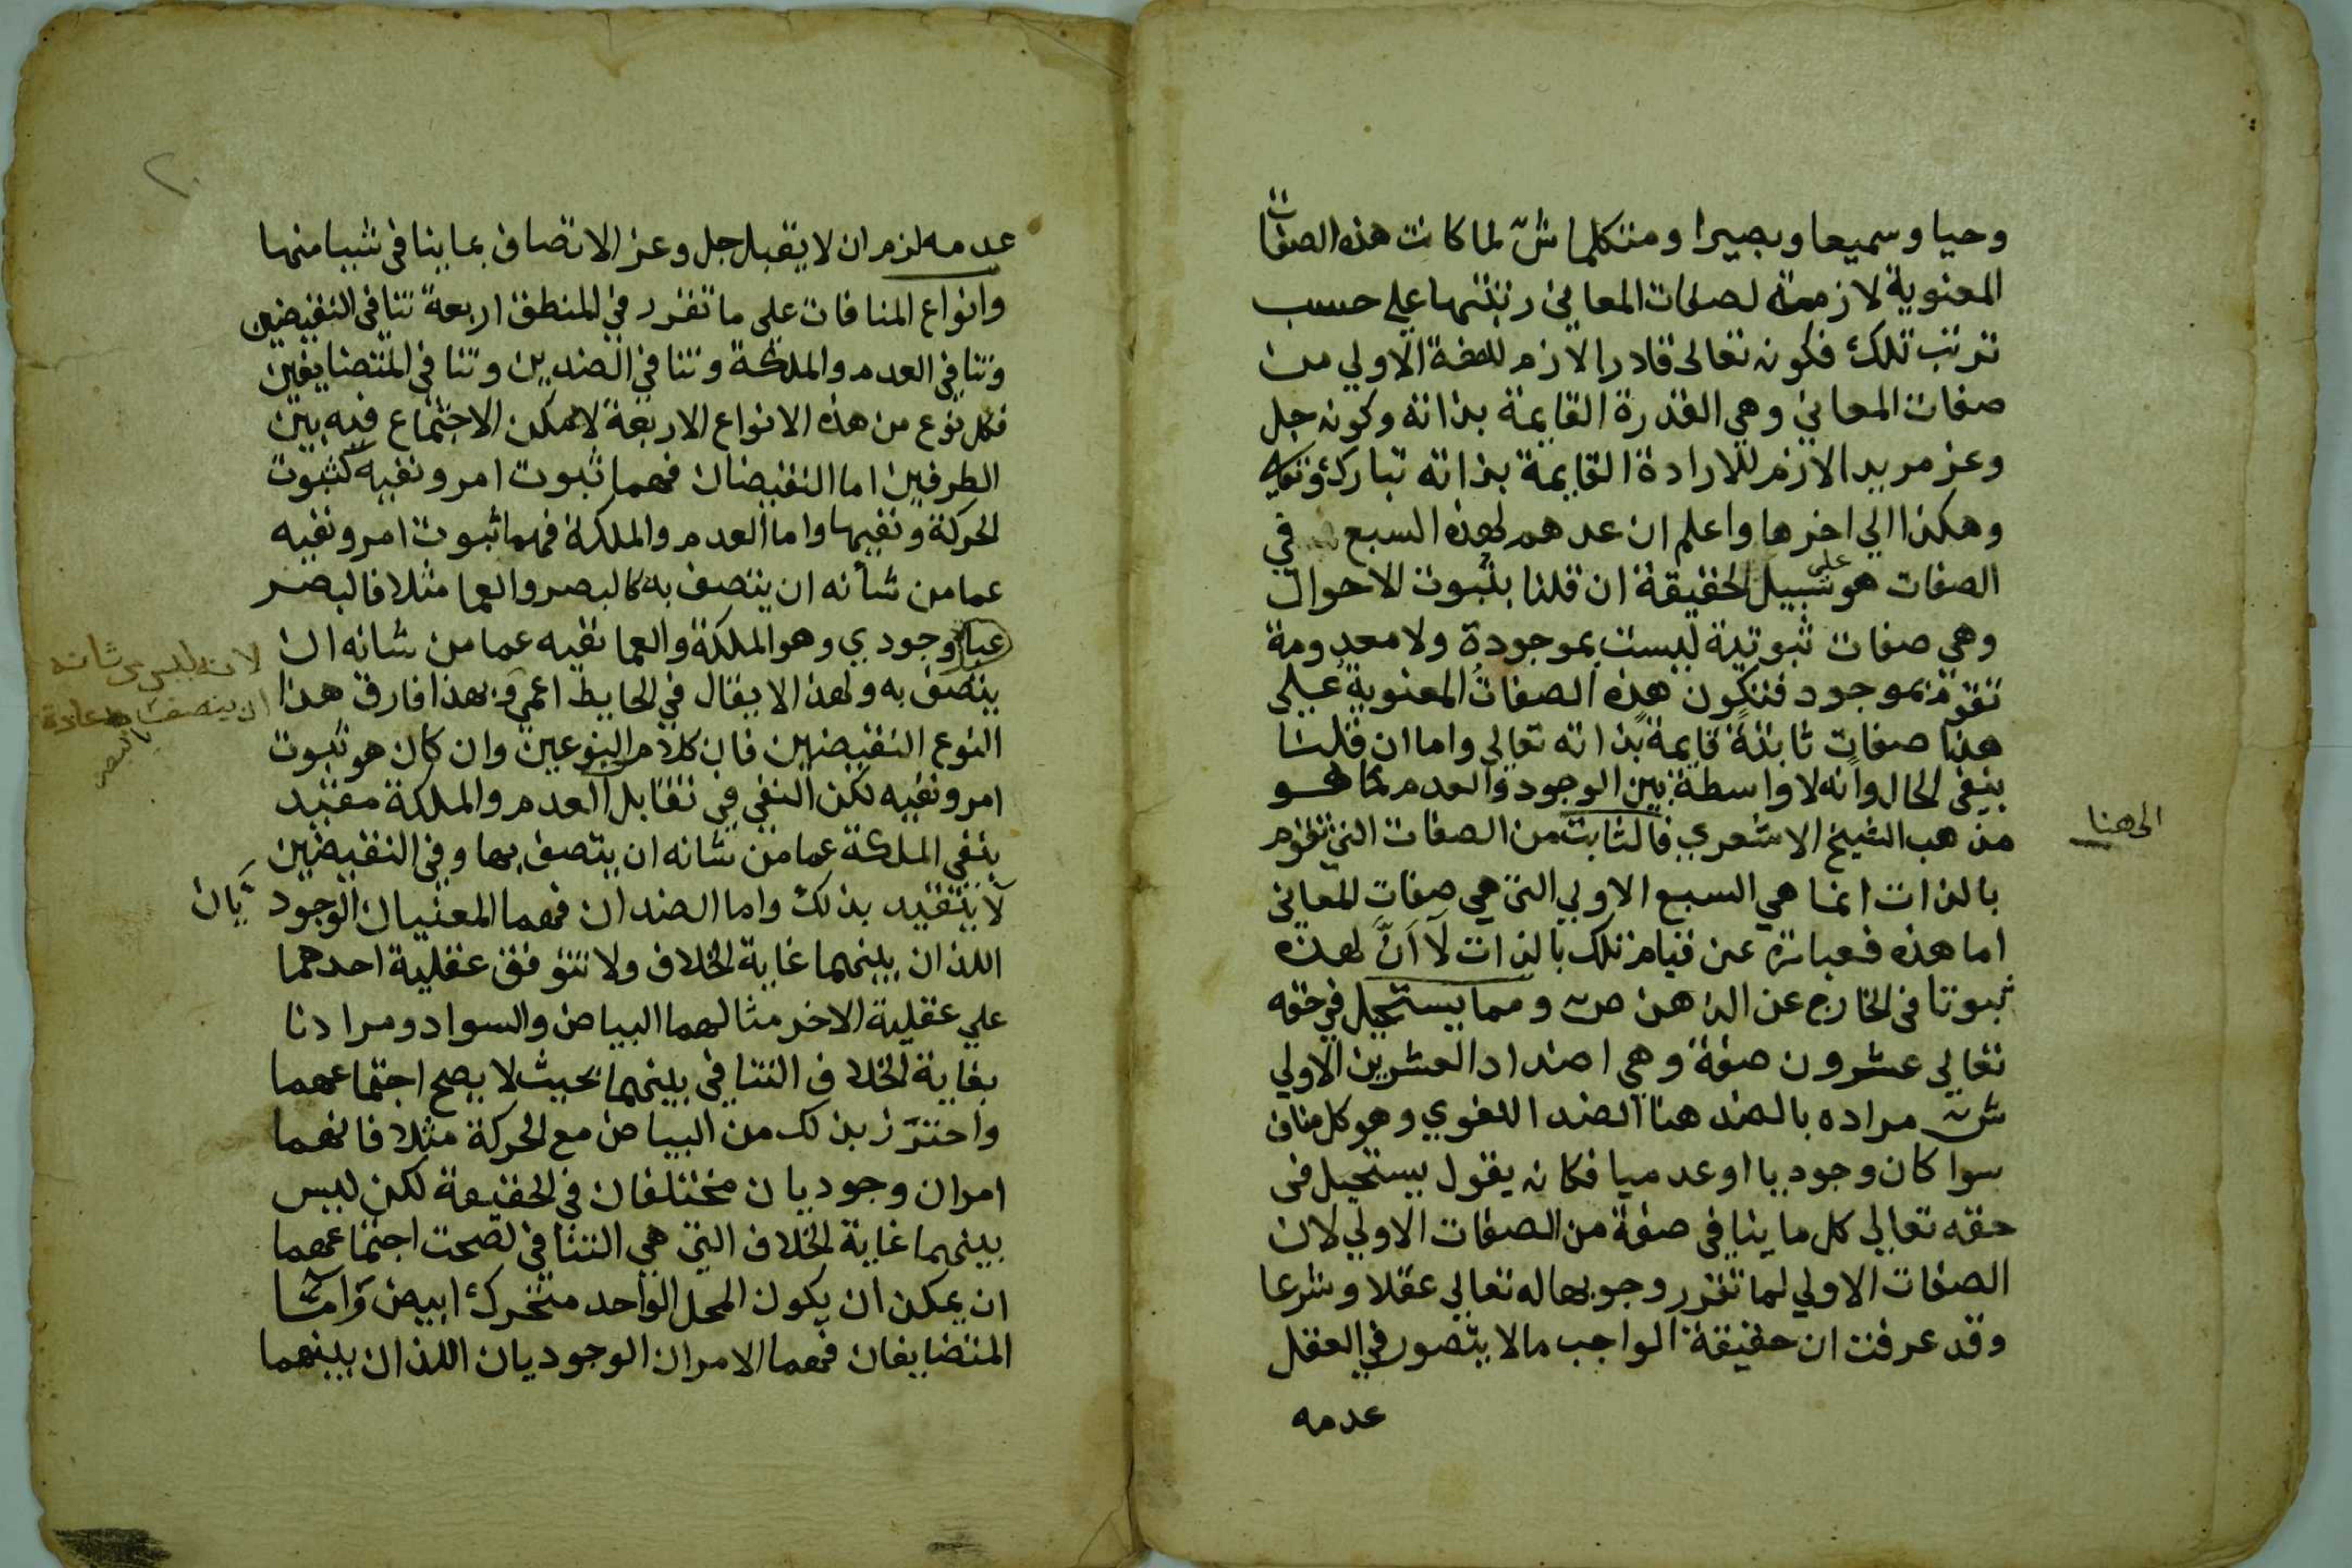 وحيا وسميعا وبصيرا ومتكلما ش لما كانت هذه الصفات
المعنوية لازمة لصفات المعاني رتبتها علي حسب
ترتب تلك فكونه تعالى قادرا لازم للصفة الاولي من
صفات المعاني وهي القدرة القايمة بذاته وكونه جل
وعز مريدا لازم للارادة القايمة بذاته تبارك وتعالى
وهكذا الي اخرها واعلم ان عدهم لهذه السبع في
الصفات هو على سبيل الحقيقة ان قلنا بثبوت الاحوال
وهي صفات ثبوتية ليست بموجودة ولا معدومة
تقوم بموجود فتكون هذه الصفات المعنوية على
هذا صفات ثابتة قايمة بذاته تعالي واما ان قلنا
بنفي الحال وانه لا واسطة بين الوجود والعدم كما هو
مذهب الشيخ الاشعري فالثابت من الصفات التي تقوم
الى هنا
بالذات انما هي السبع الاولي التي هي صفات المعاني
اما هذه فعبارة عن قيام تلك بالذات لا ان لهذه
ثبوتا في الخارج عن الذهن ص ومما يستحيل في حقه
تعالي عشرون صفة وهي اضداد العشرين الاولي
ش مراده بالضد هنا الضد اللغوي وهو كل مناف
سوا كان وجوديا او عدميا فكانه يقول يستحيل في
حقه تعالي كل ما ينافي صفة من الصفات الاولي لان
الصفات الاولي لما تقرر وجوبها له تعالي عقلا وشرعا
وقد عرفت ان حقيقة الواجب ما لا يتصور في العقل
عدمه
٢
عدمه لزم ان لا يقبل جل وعز الاتصاف بما ينافي شيا منها
وانواع المنافات على ما تقرر في المنطق اربعة تنافي النقيضين
وتنافي العدم والملكة وتنافي الضدين وتنافي المتضايفين
فكل نوع من هذه الانواع الاربعة لا يمكن الاجتماع فيه بين
الطرفين اما النقيضان فهما ثبوت امر ونفيه كثبوت
الحركة ونفيها واما العدم والملكة فهما ثبوت امر ونفيه
عما من شانه ان يتصف به كالبصر والعما مثلا فالبصر
وجودي وهو الملكة والعما نفيه عما من شانه ان
يتصف به ولهذا لا يقال في الحايط اعمى وبهذا فارق هذا
لانه ليس من شانه
ان يتصف عادة
بالبصر
النوع النقيضين فان كلام النوعين وان كان هو ثبوت
امر ونفيه لكن النفي في تقابل العدم والملكة مقيد
بنفي الملكة عما من شانه ان يتصف بها وفي النقيضين
لا يتقيد بذلك واما الضدان فهما المعنيان الوجود يان
اللذان بينهما غاية الخلاف ولا تتوقف عقلية احدهما
علي عقلية الاخر مثالهما البياض والسواد ومرادنا
بغاية الخلاف التنافي بينهما بحيث لا يصح اجتماعهما
واحترز بذلك من البياض مع الحركة مثلا فانهما
امران وجوديان مختلفان في الحقيقة لكن ليس
بينهما غاية الخلاف التي هي التنافي لصحت اجتماعهما
ان يمكن ان يكون المحل الواحد متحرك ابيض واما
المتضايفان فهما الامران الوجوديان اللذان بينهما